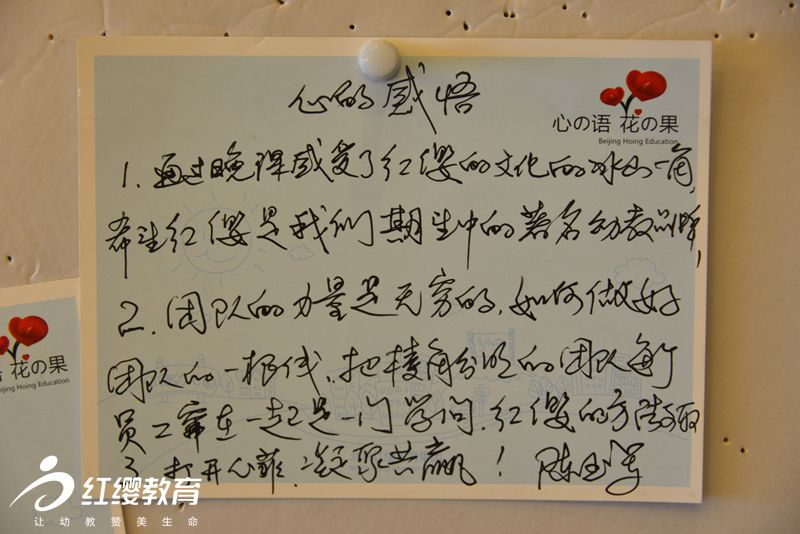 心的感悟
心の语 花の果
Beijing Hoing Education
1. 通过晚课感受了红缨的文化的冰山一角,
希望红缨是我们期望中的著名幼教品牌,
2. 团队的力量是无穷的, 如何做好
团队的一根线, 把棱角分明的团队每个
员工牵在一起是一门学问, 红缨的方法
3. 打开心扉, 凝聚共赢! 陈
语 花の果
Beijing Hoing Education
红缨教育
让幼教赞美生命